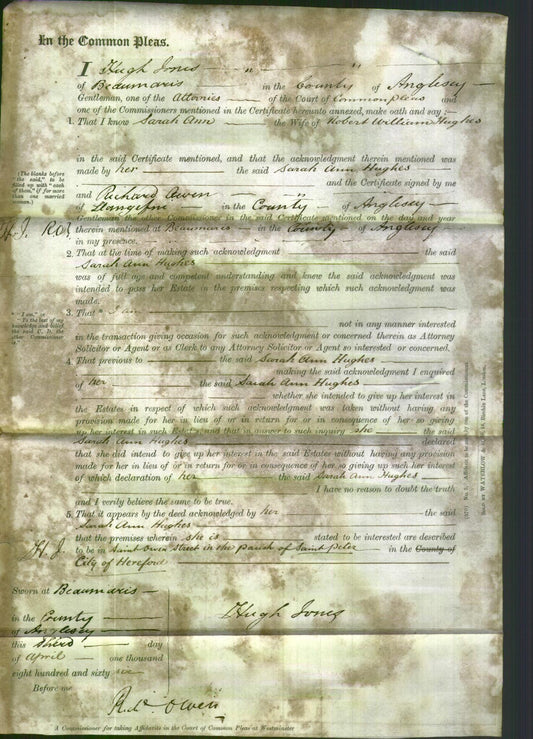 In the Common Pleas.
I Hugh Jones
of Beaumaris in the County of Anglesey
Gentleman, one of the Attornies of the Court of Common pleas and
one of the Commissioners mentioned in the Certificate hereunto annexed, make oath and say :—
1. That I know Sarah Ann the Wife of Robert William Hughes
in the said Certificate mentioned, and that the acknowledgment therein mentioned was
(The blanks before "the said," to be filled up with "each of them," if for more than one married woman.)
made by her the said Sarah Ann Hughes
and the Certificate signed by me
and Richard Owen
of in the County of Anglesey
Gentleman the other Commissioner in the said Certificate mentioned on the day and year
H. J. therein mentioned at Beaumaris in the County of Anglesey
in my presence.
2. That at the time of making such acknowledgment the said
Sarah Ann Hughes
was of full age and competent understanding and knew the said acknowledgment was
intended to pass her Estate in the premises respecting which such acknowledgment was
made.
3. That I am
"I am," or "To the best of my knowledge and belief the said C. D. the other Commissioner is"
not in any manner interested
in the transaction giving occasion for such acknowledgment or concerned therein as Attorney
Solicitor or Agent or as Clerk to any Attorney Solicitor or Agent so interested or concerned.
4. That previous to the said Sarah Ann Hughes
making the said acknowledgment I enquired
of her the said Sarah Ann Hughes
whether she intended to give up her interest in
the Estates in respect of which such acknowledgment was taken without having any
provision made for her in lieu of or in return for or in consequence of her so giving
up her interest in such Estates and that in answer to such inquiry she the said
Sarah Ann Hughes declared
that she did intend to give up her interest in the said Estates without having any provision
made for her in lieu of or in return for or in consequence of her so giving up such her interest
of which declaration of her the said Sarah Ann Hughes
I have no reason to doubt the truth
and I verily believe the same to be true.
5. That it appears by the deed acknowledged by her the said
Sarah Ann Hughes
that the premises wherein she is stated to be interested are described
H. J. to be in Saint Owen Street in the parish of Saint Peter in the County of
City of Hereford
Sworn at Beaumaris
in the County
of Anglesey
this third day
of April one thousand
eight hundred and sixty
Before me
Hugh Jones
Rd Owen
A Commissioner for taking Affidavits in the Court of Common Pleas at Westminster